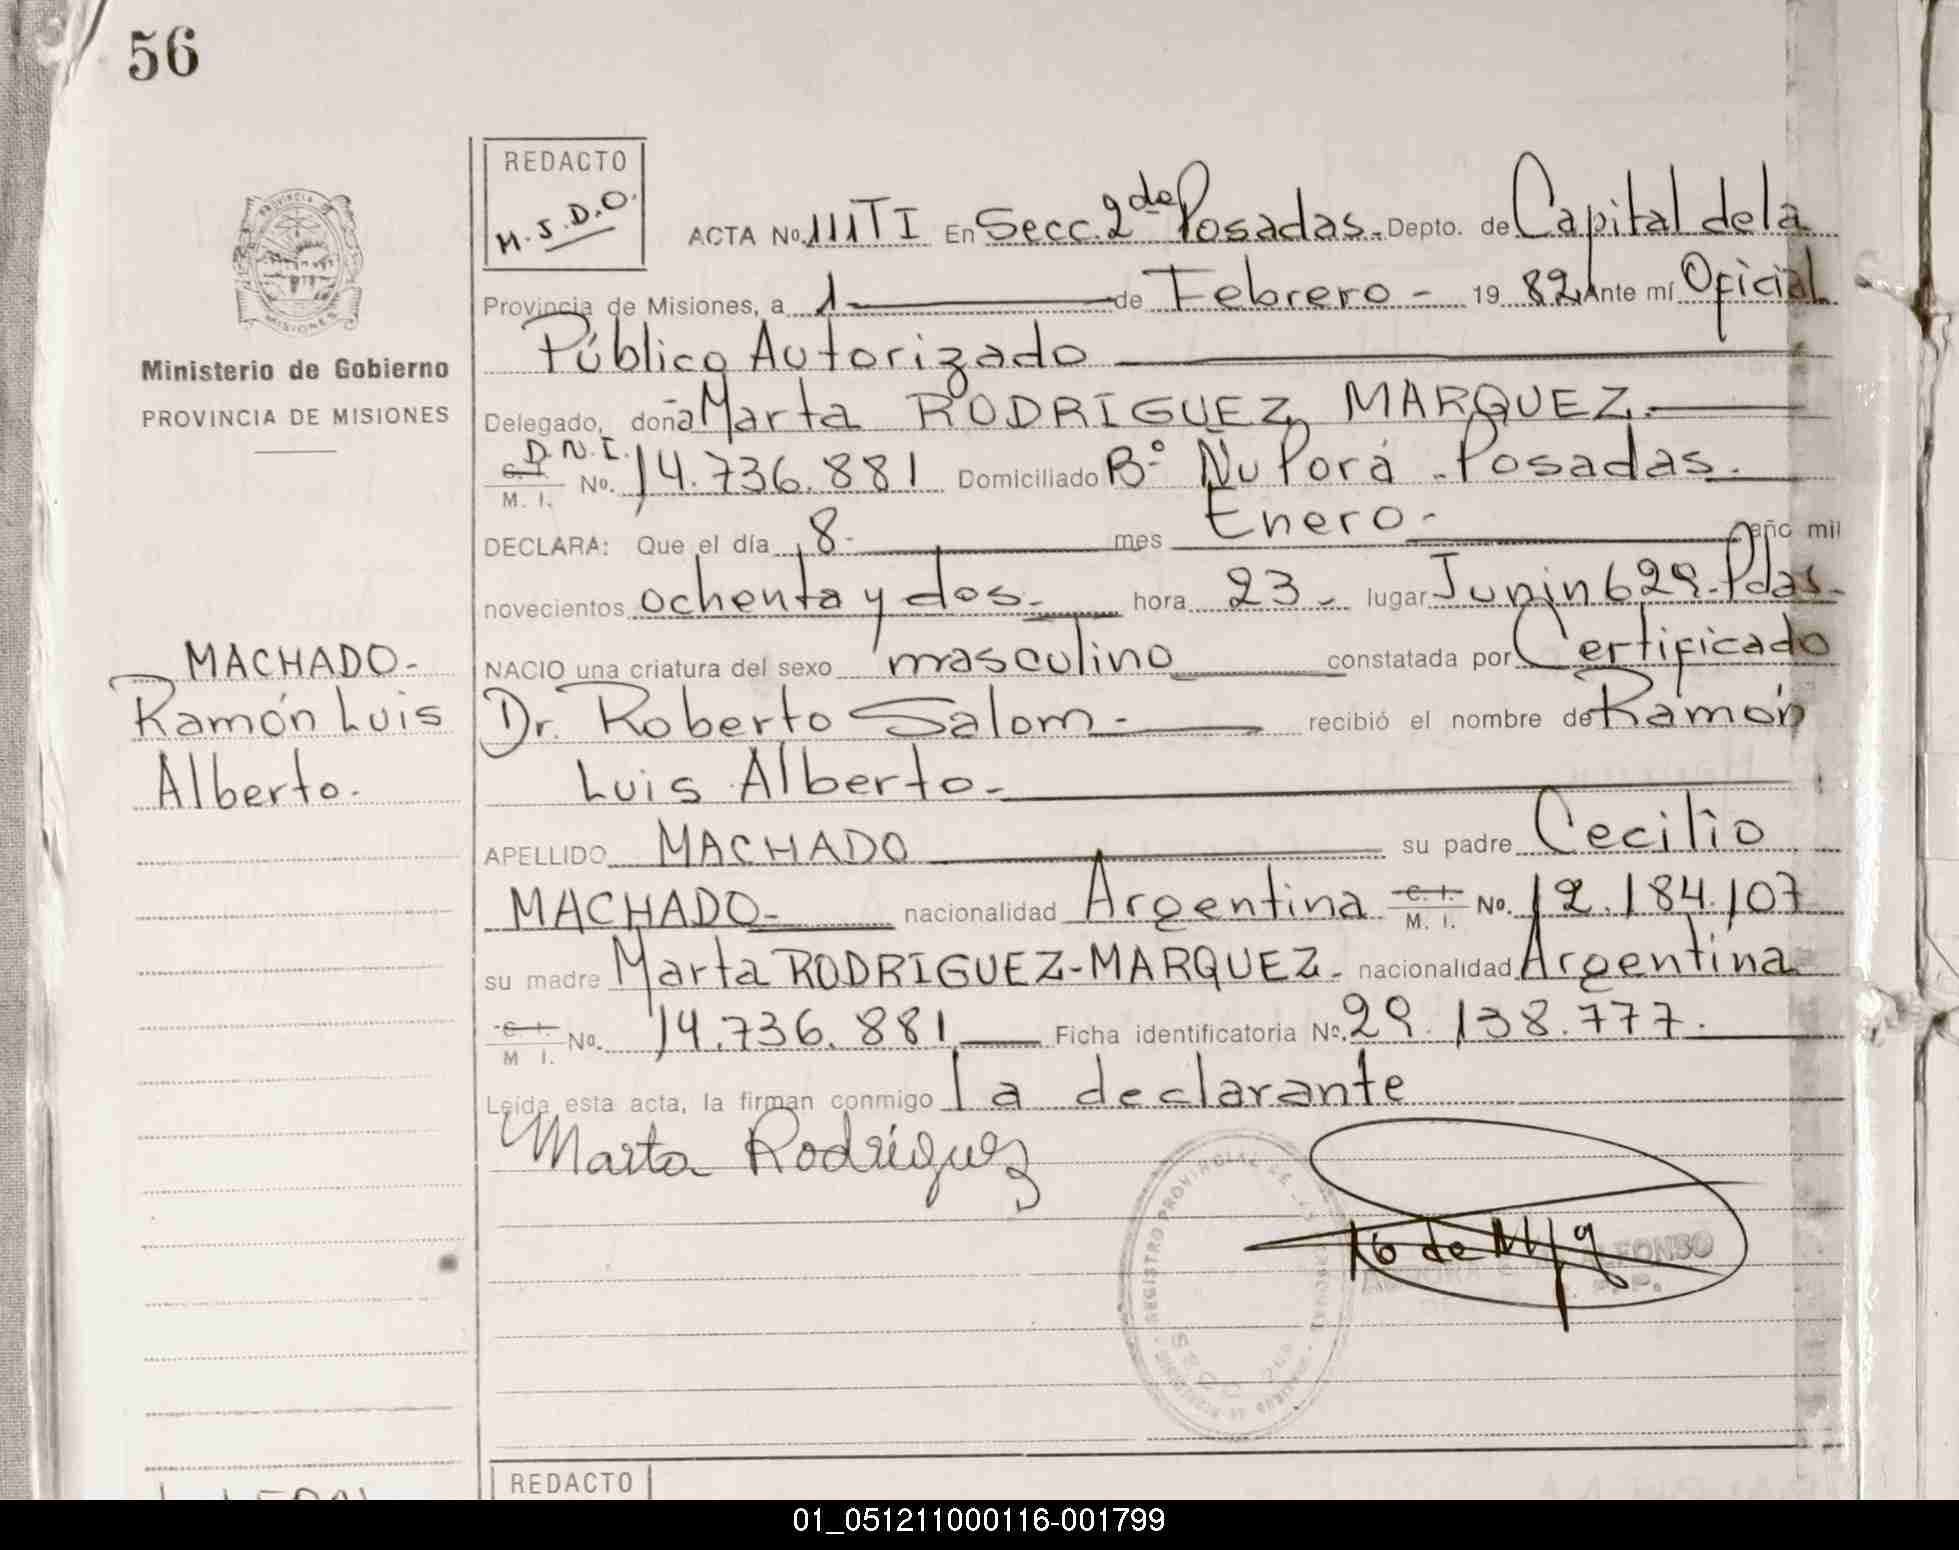 56
REDACTO
M.S.D.O.
ACTA No. 111TI En Secc. 2da Posadas. Depto. de Capital de la
Provincia de Misiones, a 1 de Febrero - 19 82 Ante mí Oficial
Público Autorizado
Ministerio de Gobierno
PROVINCIA DE MISIONES
Delegado, doña Marta RODRIGUEZ MARQUEZ.
D.N.I.
C. I.
M. I. No. 14.736.881 Domiciliado Bº Ñu Porá - Posadas.
DECLARA: Que el día 8. mes Enero - año mil
novecientos ochenta y dos. hora 23 - lugar Junin 629. Pdas.
NACIO una criatura del sexo masculino constatada por Certificado
Dr. Roberto Salom - recibió el nombre de Ramón
Luis Alberto -
MACHADO -
Ramón Luis
Alberto.
APELLIDO MACHADO su padre Cecilio
MACHADO - nacionalidad Argentina C. I. M. I. No. 12.184.107
su madre Marta RODRIGUEZ-MARQUEZ - nacionalidad Argentina
C. I. M I. No. 14.736.881 Ficha identificatoria No. 29.138.777.
Leída esta acta, la firman conmigo la declarante
Marta Rodriguez
REGISTRO PROVINCIAL DE LAS
ALFONSO
REDACTO
01_051211000116-001799